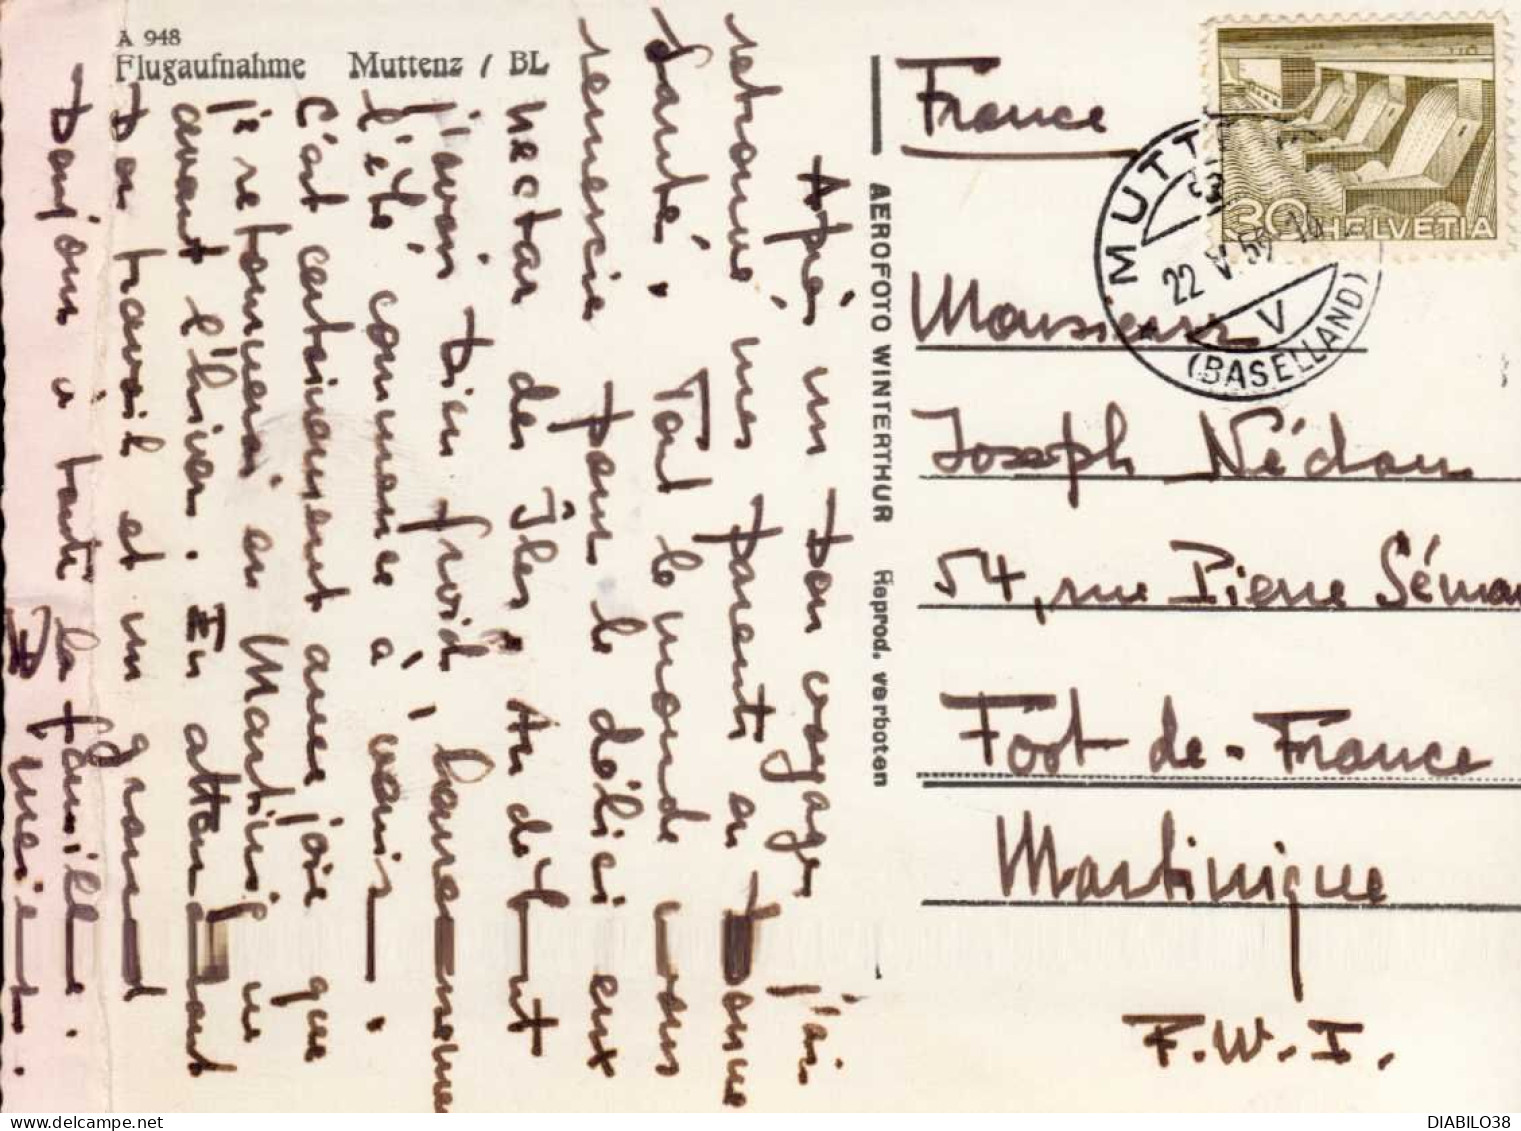 A 948
Flugaufnahme Muttenz / BL
Après un bon voyage, j'ai
retrouvé mes parents en bonne
santé. Tout le monde vous
remercie pour le délicieux
nectar des Îles. Au début
j'avais bien froid, heureusement
l'été commence à venir.
C'est certainement avec joie que
je retournerai en Martinique
avant l'hiver. En attendant
bon travail et un grand
bonjour à toute la famille.
AEROFOTO WINTERTHUR Reprod. verboten
France
Monsieur
Joseph Nédan
54, rue Pierre Séma
Fort-de-France
Martinique
F.W.I.
30 HELVETIA
MUTT
22.V.5
V
(BASELLAND)
DIABILO38